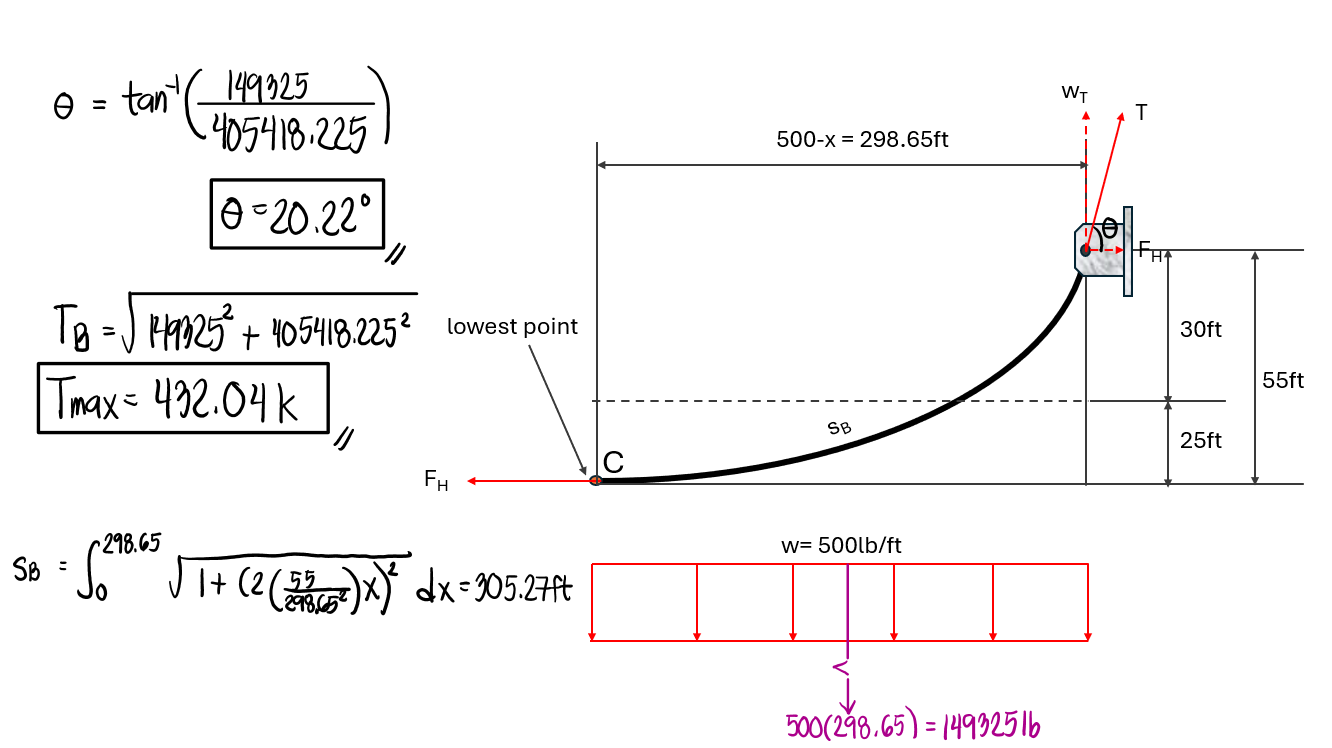 θ = tan⁻¹(149325/405418.225)
θ = 20.22°
T_B = √149325² + 405418.225²
Tmax = 432.04 k
S_B = ∫₀^298.65 √1 + (2(55/298.65²)x)² dx = 305.27ft
w_T
T
500-x = 298.65ft
θ
F_H
lowest point
30ft
55ft
s_B
25ft
C
F_H
w= 500lb/ft
500(298.65) = 149325lb